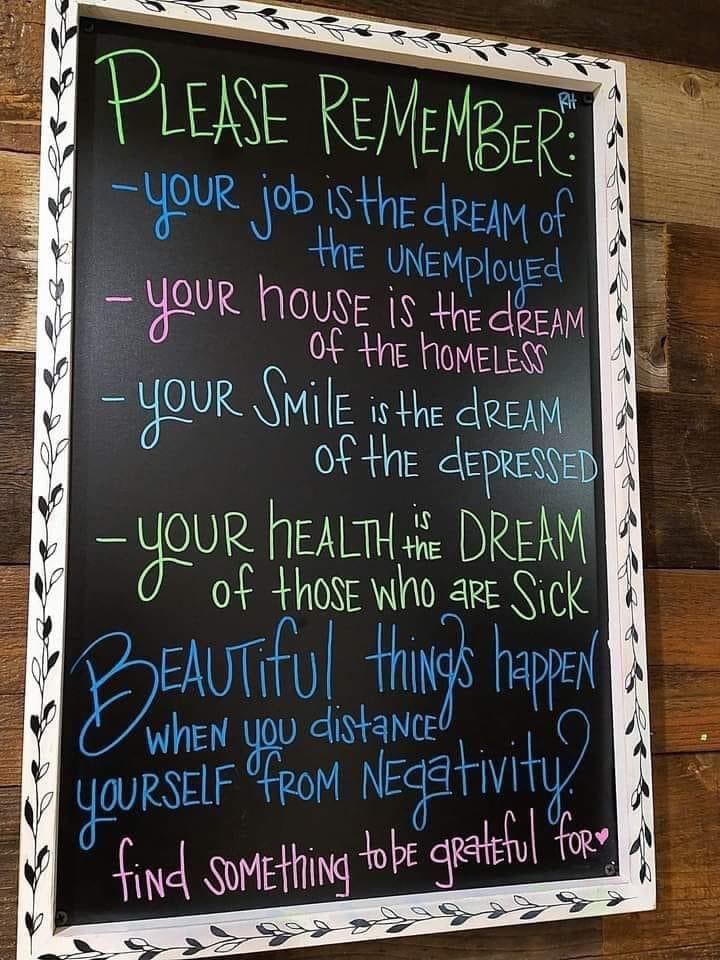 PLEASE REMEMBER:
RH
- YOUR job is tHE dREAM of
tHE UNEMployEd
- YOUR hOUSE iS tHE dREAM
Of tHE hOMELESS
- YOUR SMilE is tHE dREAM
Of tHE dEpRESSED
- YOUR hEALTH is tHE DREAM
Of thOSE WhO aRE SicK
BEAUTiful things happEN
WHEN you distaNCE
yOURSELF FROM NEgativity!
find SOMEthing to bE gRatEful foR♥